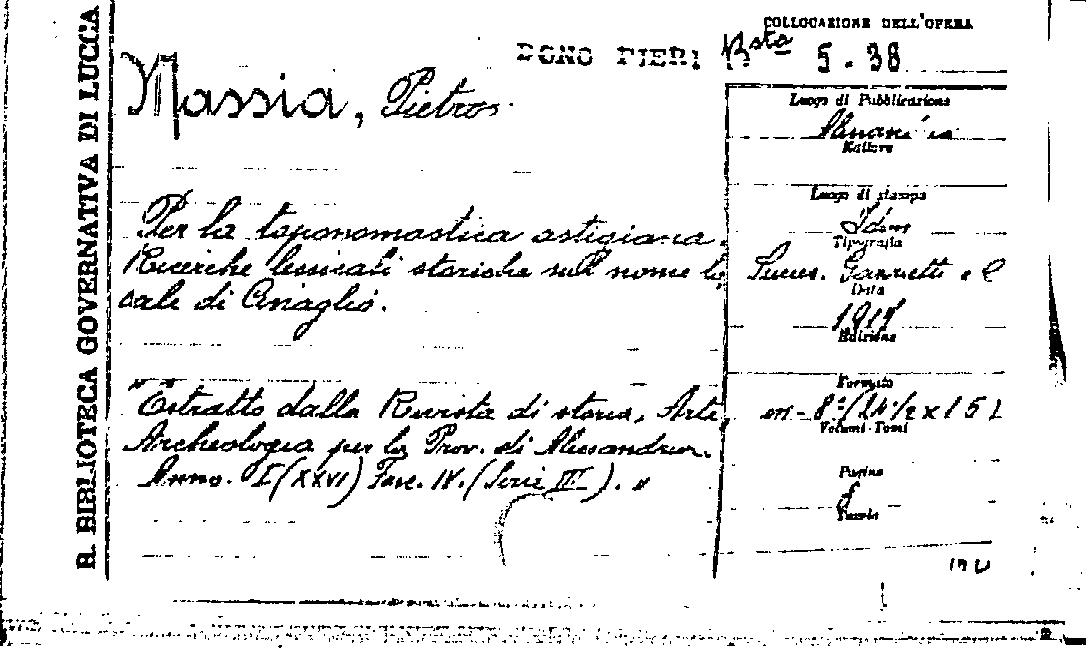 R. BIBLIOTECA GOVERNATIVA DI LUCCA
COLLOCAZIONE DELL'OPERA
DONO PIERI Bsta 5.38
Massia, Pietro.
Luogo di Pubblicazione
Editore
Per la toponomastica astigiana.
Ricerche lessicali storiche sul nome lo
cale di Aniaglio.
Luogo di stampa
Idem
Tipografia
Succ. Gazzotti e C
Data
Edizione
"Estratto dalla Rivista di storia, Arte,
Archeologia per la Prov. di Alessandria.
Anno. I (XXVI) Fasc. IV. (Serie III)."
Formato
in-8°
Volumi-Tomi
Pagine
Tavole